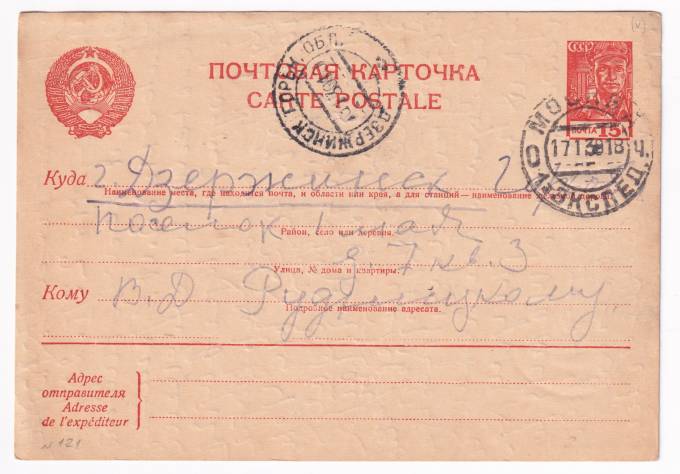 СССР
ПОЧТОВАЯ КАРТОЧКА
CARTE POSTALE
ПОЧТА 15
ДЗЕРЖИНСК ГОРЬК. ОБЛ.
МОСКВА
17 1 39 18 Ч.
ЭКСПЕД.
Куда г. Дзержинск
Наименование места, где находится почта, и области или края, а для станций — наименование
поселок 1 Мая
Район, село или деревня.
д. 7 кв. 3
Улица, № дома и квартиры.
Кому В. Д. Рудницкому.
Подробное наименование адресата.
Адрес
отправителя
Adresse
de l'expéditeur
N 121